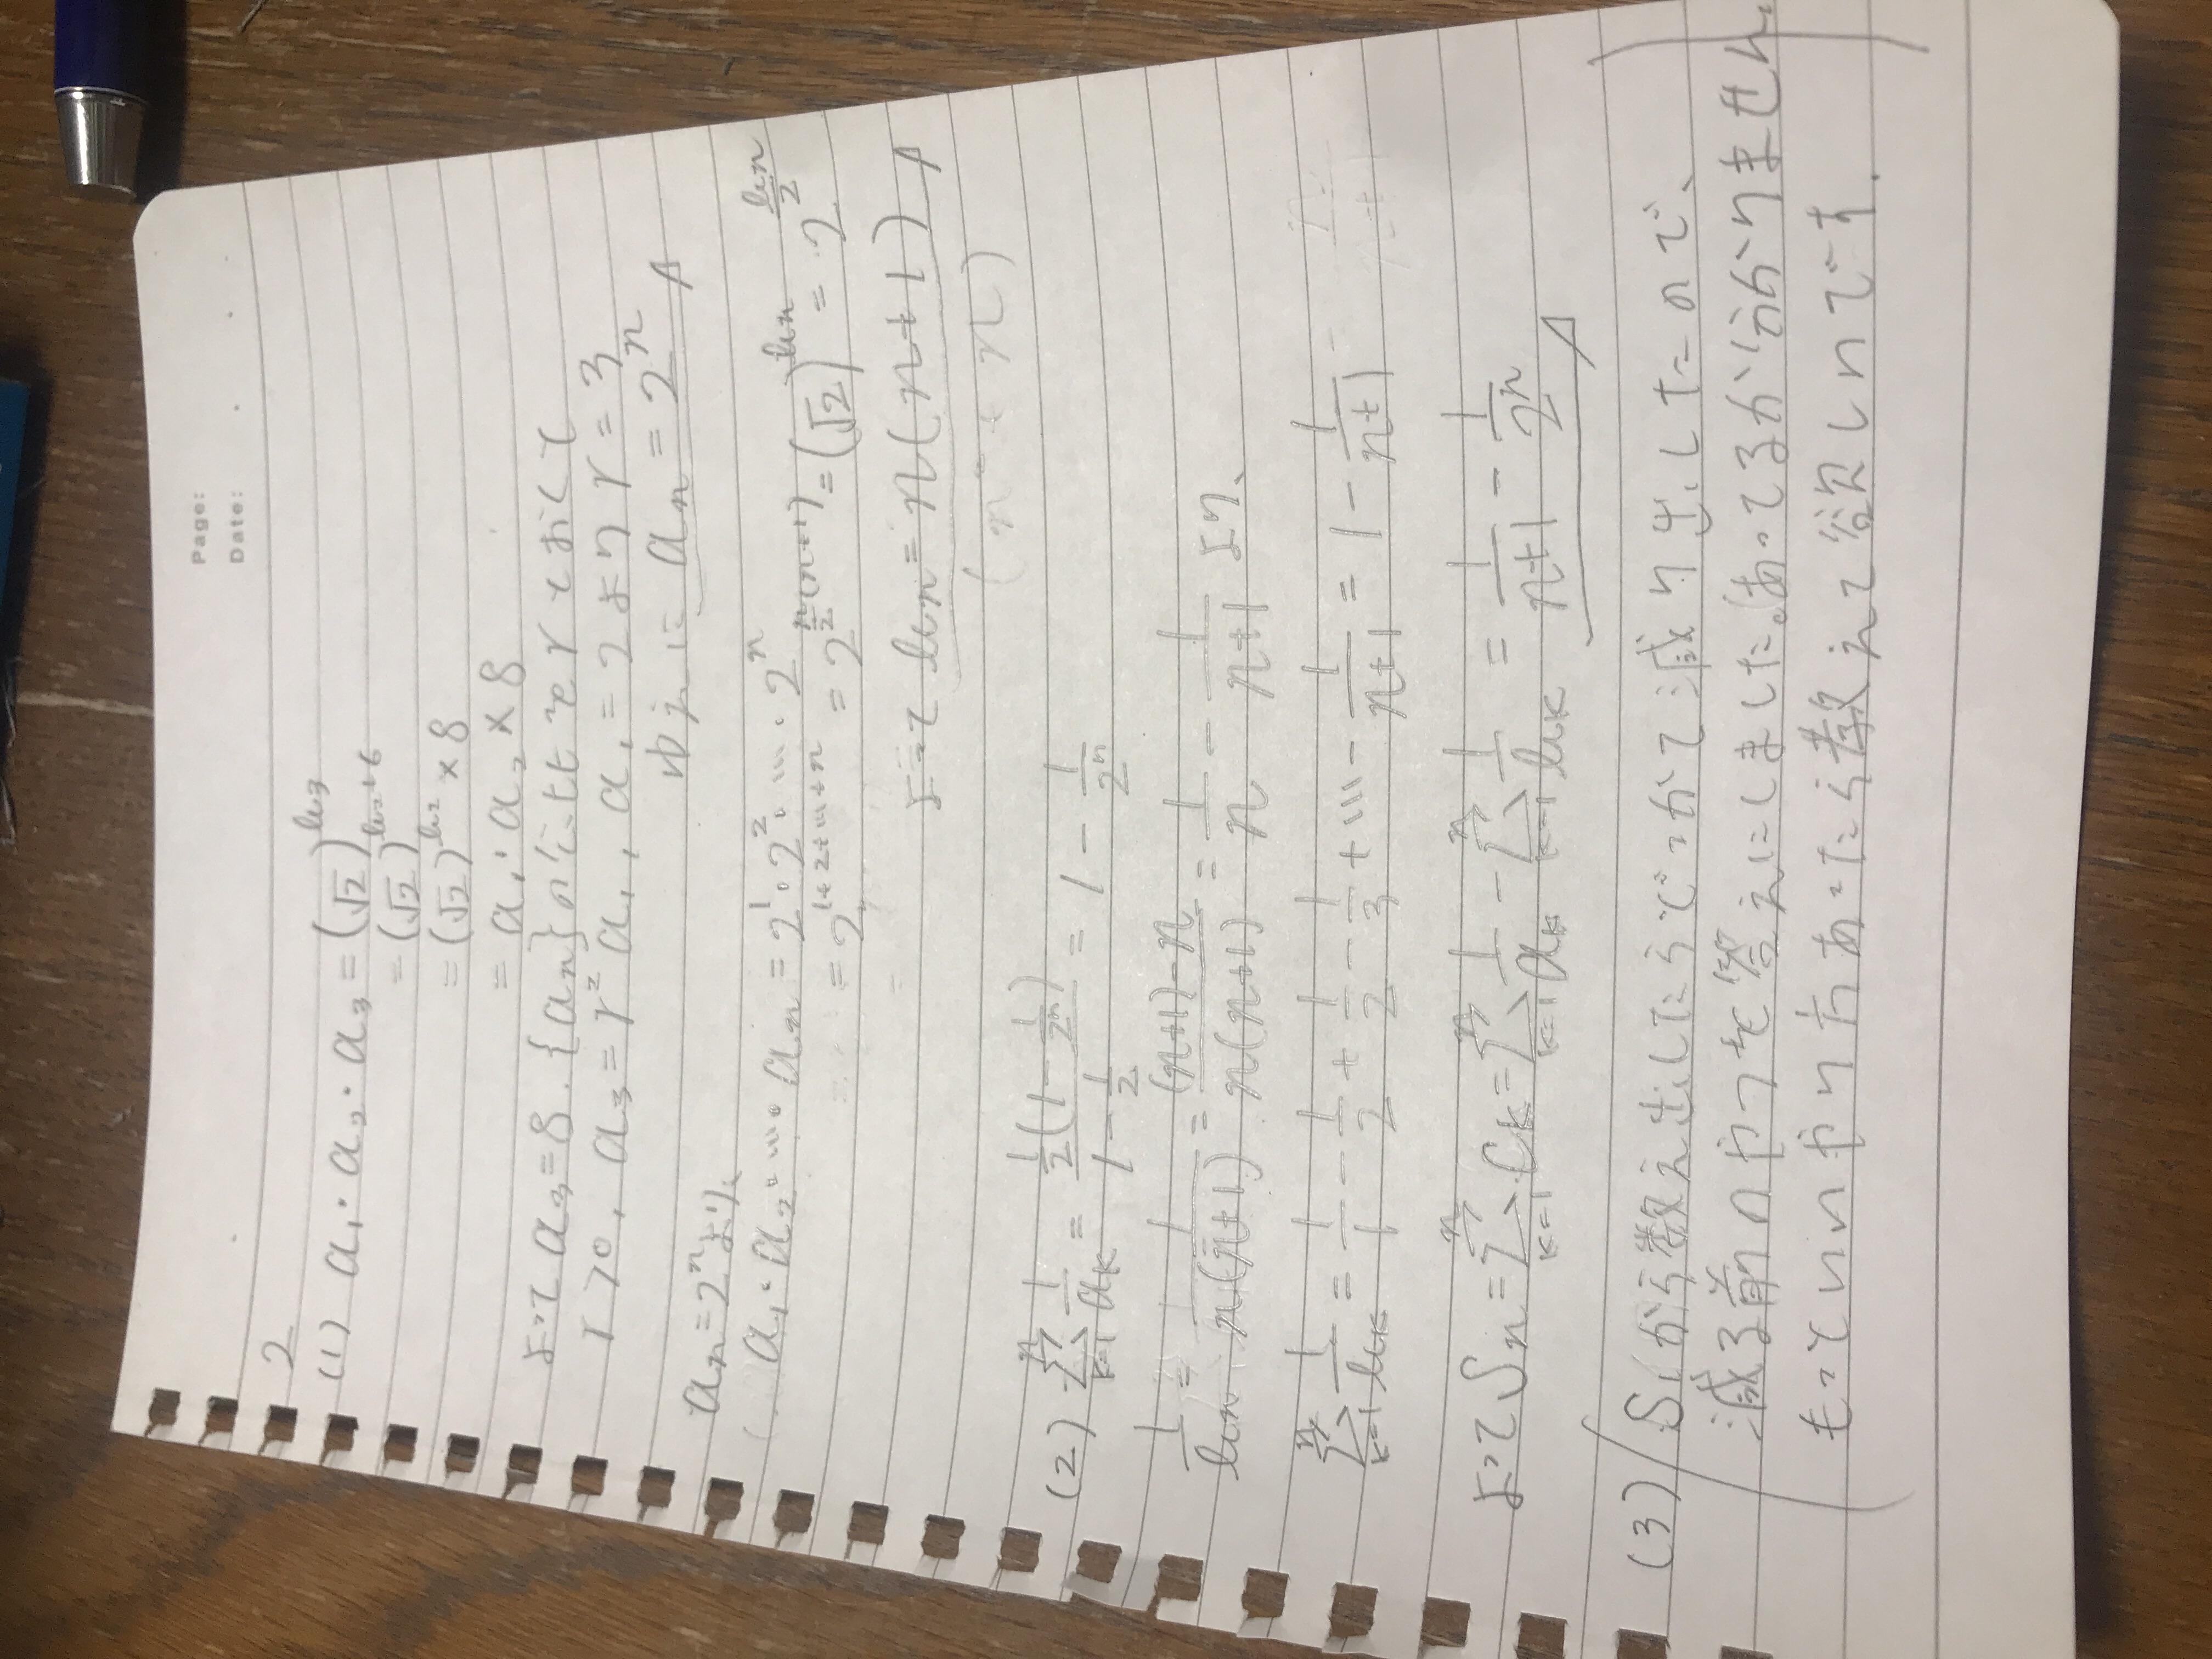 Page:
Date:
2
(1) a₁・a₂・a₃ = (√2)^b₃
= (√2)^b₂+6
= (√2)^b₂ × 8
= a₁・a₂ × 8
よって a₃ = 8. {an}の公比をrとおくと
r > 0, a₃ = r² a₁, a₁ = 2 より r = 3
ゆえに an = 2ⁿ
an = 2ⁿより、
a₁・a₂・…・an = 2¹・2²・…・2ⁿ
= 2^1+2+…+n = 2^n/2(n+1) = (√2)^bn = 2^bn/2
よって bn = n(n+1)
(n² + n)
(2) Σ[k=1→n] 1/ak = 1/2(1 - 1/2ⁿ) / 1 - 1/2 = 1 - 1/2ⁿ
1/bn = 1/n(n+1) = (n+1)-n / n(n+1) = 1/n - 1/n+1 より、
Σ[k=1→n] 1/bk = 1/1 - 1/2 + 1/2 - 1/3 + … - 1/n+1 = 1 - 1/n+1
よって Sn = Σ[k=1→n] Ck = Σ[k=1→n] 1/ak - Σ[k=1→n] 1/bk = 1/n+1 - 1/2ⁿ
(3) (S₁から数え出したらじっかて減り出したので、
減る前のやつを答えにしました。あってるか分かりません。
もっといいやり方あったら教えて欲しいです.)